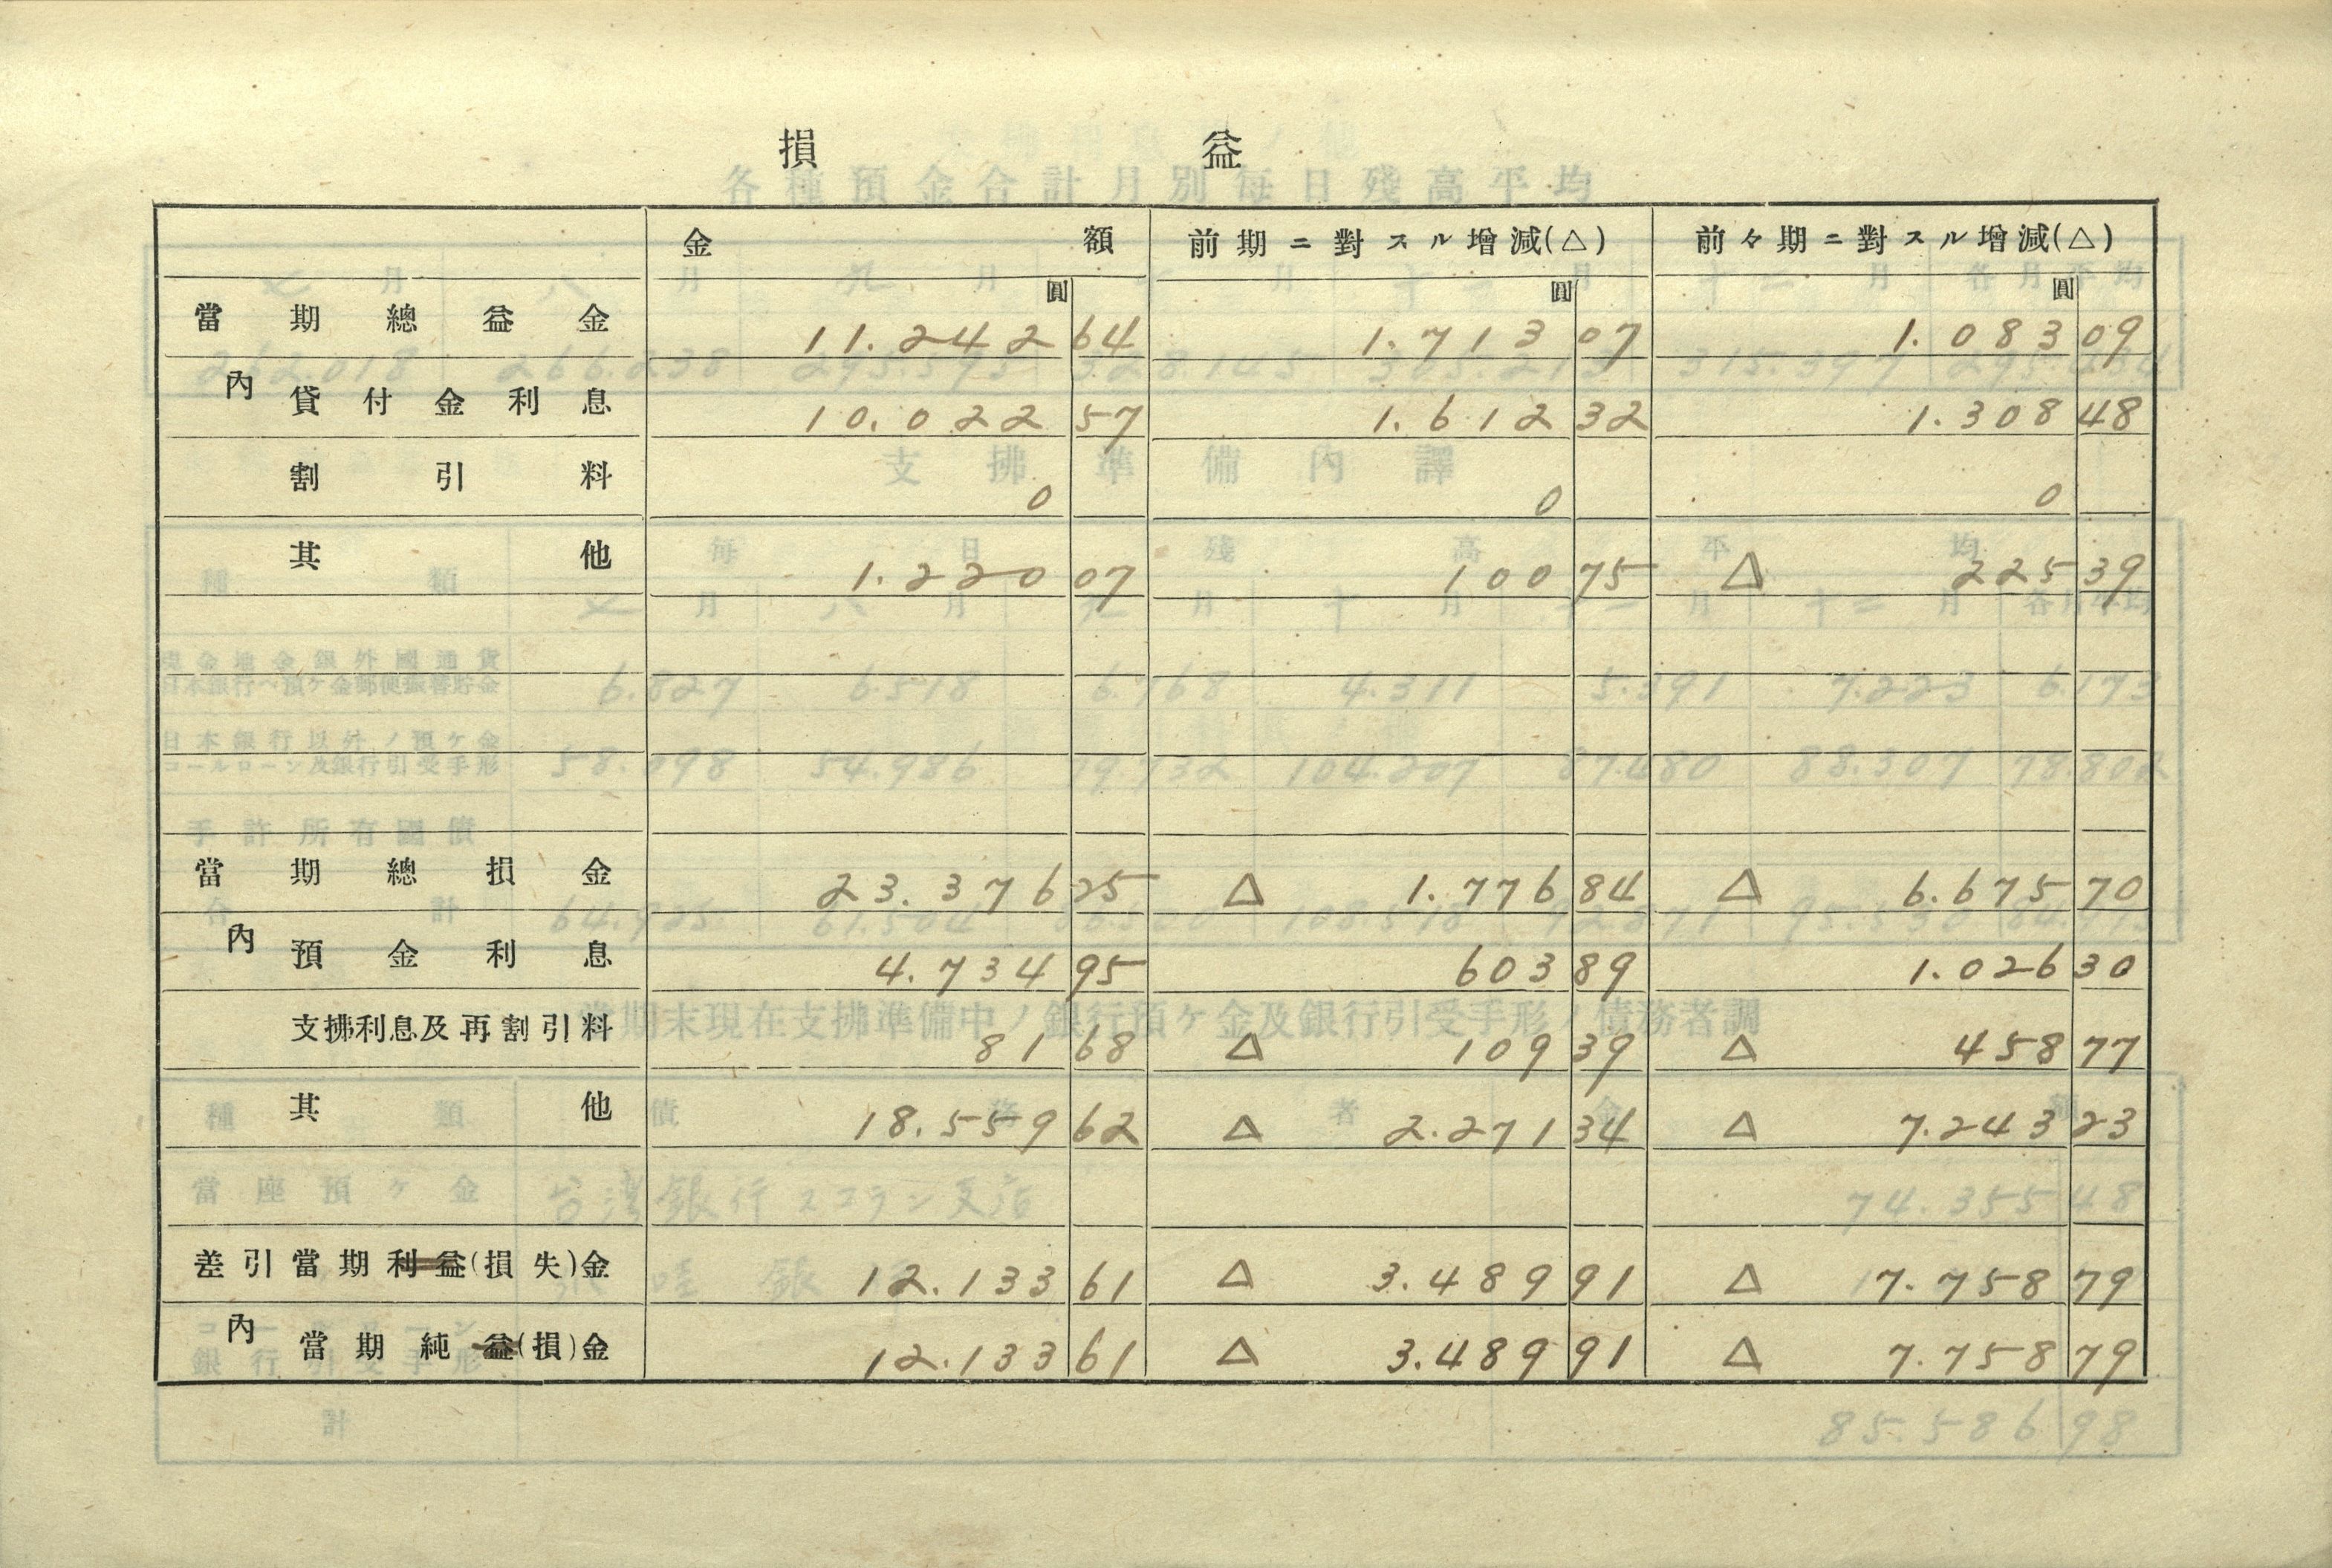 損益
金額 前期ニ對スル增減(△) 前々期ニ對スル增減(△)
圓 圓 圓
當期總益金 11.242 64 1.713 07 1.083 09
內 貸付金利息 10.022 57 1.612 32 1.308 48
割引料 0 0 0
其他 1.220 07 100 75 △ 225 39
當期總損金 23.376 25 △ 1.776 84 △ 6.675 70
內 預金利息 4.734 95 603 89 1.026 30
支拂利息及再割引料 81 68 △ 109 39 △ 458 77
其他 18.559 62 △ 2.271 34 △ 7.243 23
差引當期利益(損失)金 12.133 61 △ 3.489 91 △ 7.758 79
內 當期純益(損)金 12.133 61 △ 3.489 91 △ 7.758 79